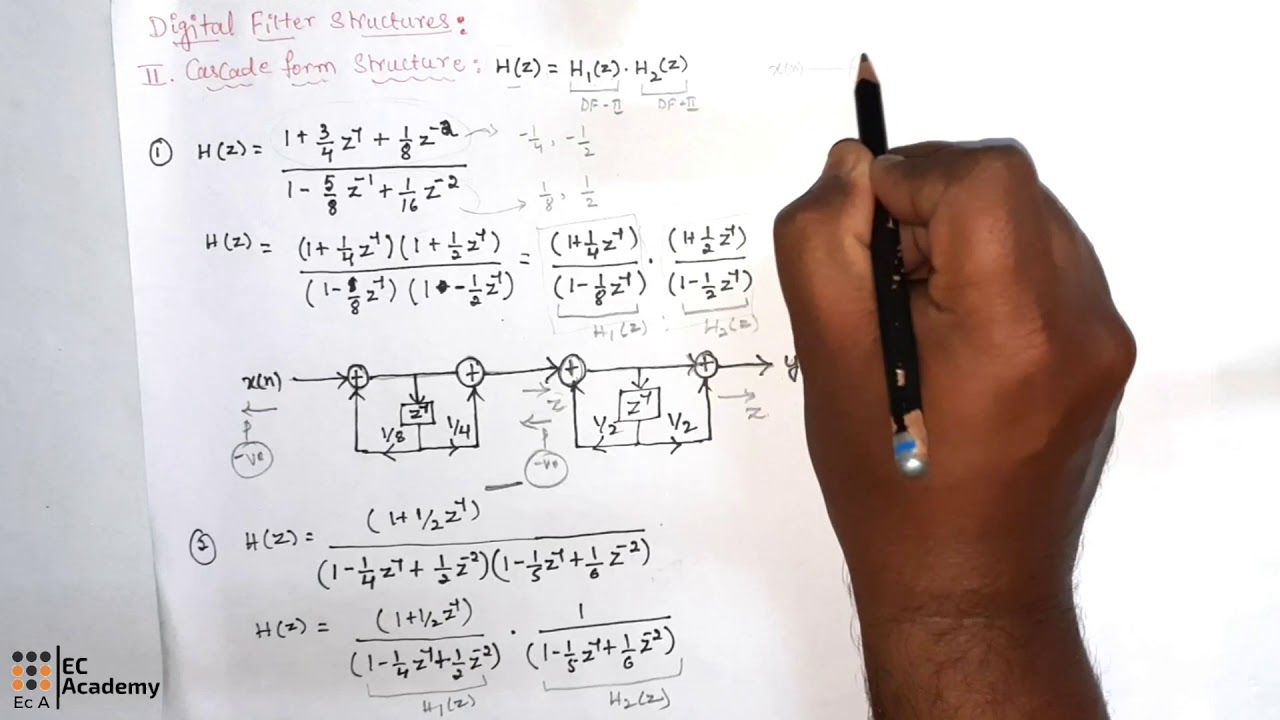 Digital Filter Structures:
II. Cascade form Structure: H(z) = H₁(z) · H₂(z)
DF-II DF-II
x(n)
① H(z) = (1 + 3/4 z⁻¹ + 1/8 z⁻²) / (1 - 5/8 z⁻¹ + 1/16 z⁻²)
-1/4, -1/2
1/8, 1/2
H(z) = (1 + 1/4 z⁻¹)(1 + 1/2 z⁻¹) / (1 - 1/8 z⁻¹)(1 - 1/2 z⁻¹) = (1+1/4 z⁻¹) / (1 - 1/8 z⁻¹) · (1+1/2 z⁻¹) / (1 - 1/2 z⁻¹)
H₁(z) · H₂(z)
x(n) + + + + y
z⁻¹ z⁻¹
1/8 1/4 1/2 1/2
P z P z
-ve -ve
② H(z) = (1+1/2 z⁻¹) / (1 - 1/4 z⁻¹ + 1/2 z⁻²)(1 - 1/5 z⁻¹ + 1/6 z⁻²)
H(z) = (1+1/2 z⁻¹) / (1 - 1/4 z⁻¹ + 1/2 z⁻²) · 1 / (1 - 1/5 z⁻¹ + 1/6 z⁻²)
H₁(z) H₂(z)
EC
Academy
Ec A